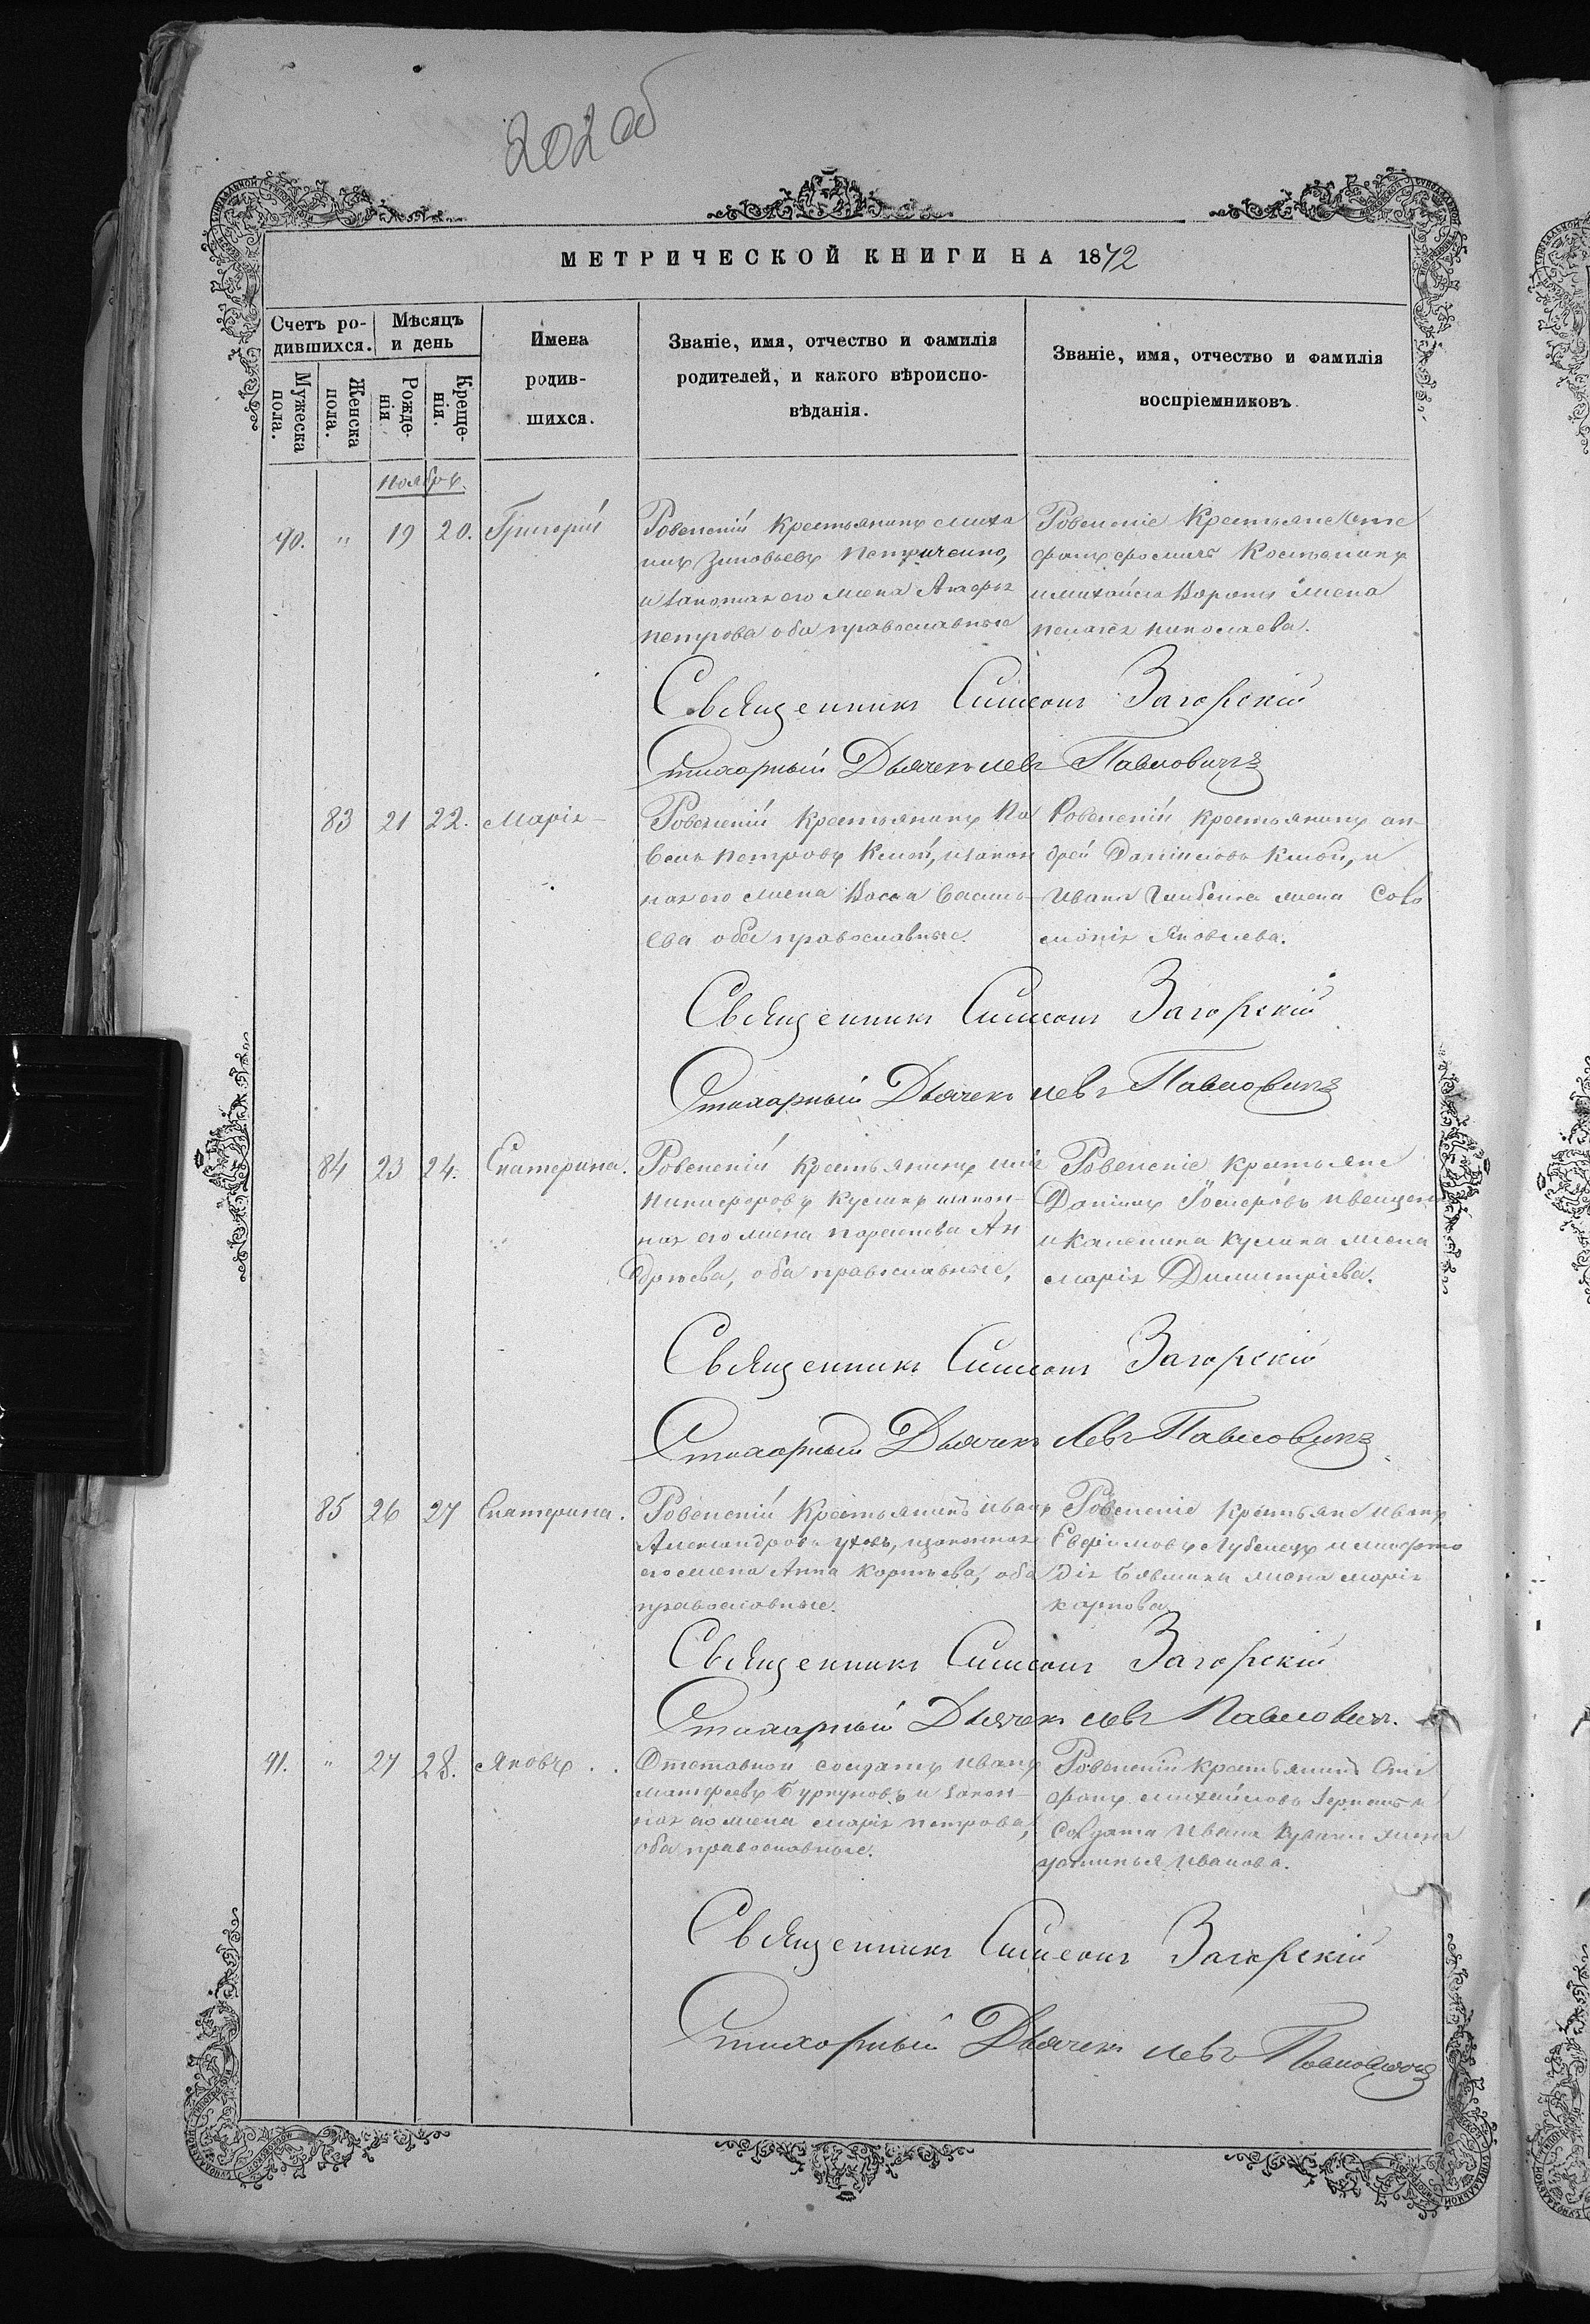 202 об
МЕТРИЧЕСКОЙ КНИГИ НА 1872
Счетъ ро-
дившихся.
Мужеска
пола.
Женска
пола.
Мѣсяцъ
и день
Рожде-
нія
Креще-
нія.
Имена
родив-
шихся.
Званіе, имя, отчество и фамилія
родителей, и какого вѣроиспо-
вѣданія.
Званіе, имя, отчество и фамилія
воспріемниковъ
Ноябрь.
90. " 19 20. Григорій
Ровенскій крестьянинъ Миха
илъ Зиновьевъ
и законная его жена
Петрова оба православные
Ровенскіе крестьяне Сте
фанъ
и Михайла жена
Николаева.
Священникъ Симеонъ Загорскій
Стихарный Дьячекъ Левъ Павловичъ
83 21 22. Марія
Ровенскій крестьянинъ Па
велъ Петровъ и закон
ная его жена Васса Василь-
ева оба православные.
Ровенскій крестьянинъ Ан-
дрей Даніиловъ и
Ивана жена Соло
монія Яковлева.
Священникъ Симеонъ Загорскій
Стихарный Дьячекъ Левъ Павловичъ
84 23 24. Екатерина.
Ровенскій крестьянинъ
Никифоровъ закон-
ная его жена Ан
дрѣева, оба православные,
Ровенскіе крестьяне
Даніилъ
и жена
Марія Димитріева.
Священникъ Симеонъ Загорскій
Стихарный Дьячекъ Левъ Павловичъ
85 26 27 Екатерина.
Ровенскій крестьянинъ Иванъ
Александровъ и законная
его жена Анна Корнѣева, оба
православные.
Ровенскіе крестьяне Иванъ
Евфимовъ
жена Марія
Карпова
Священникъ Симеонъ Загорскій
Стихарный Дьячекъ Левъ Павловичъ.
91. " 27 28. Яковъ
Отставной солдатъ Иванъ
Матфеевъ и закон-
ная его жена Марія Петрова,
оба православные.
Ровенскій крестьянинъ Сте
фанъ Михайловъ и
солдата Ивана жена
Иванова.
Священникъ Симеонъ Загорскій
Стихарный Дьячекъ Левъ Павловичъ